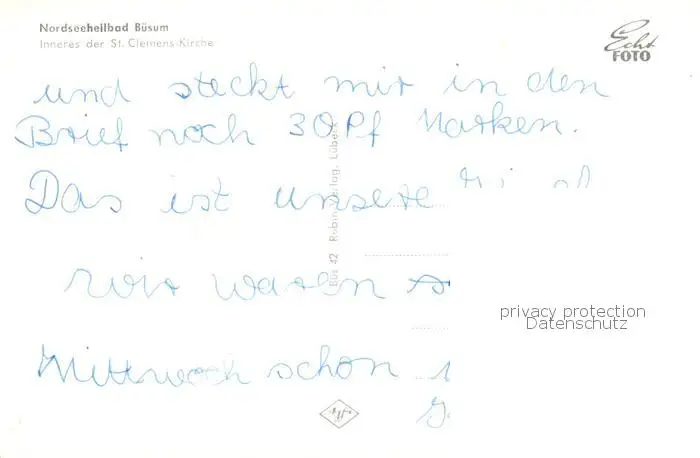 Nordseeheilbad Büsum
Inneres der St. Clemens-Kirche
Echt
FOTO
und steckt mir in den
Brief noch 30Pf Marken.
Das ist unsere
Wir waren
Mittwoch schon
Büs 42 Rubin-Verlag, Lübeck
privacy protection
Datenschutz